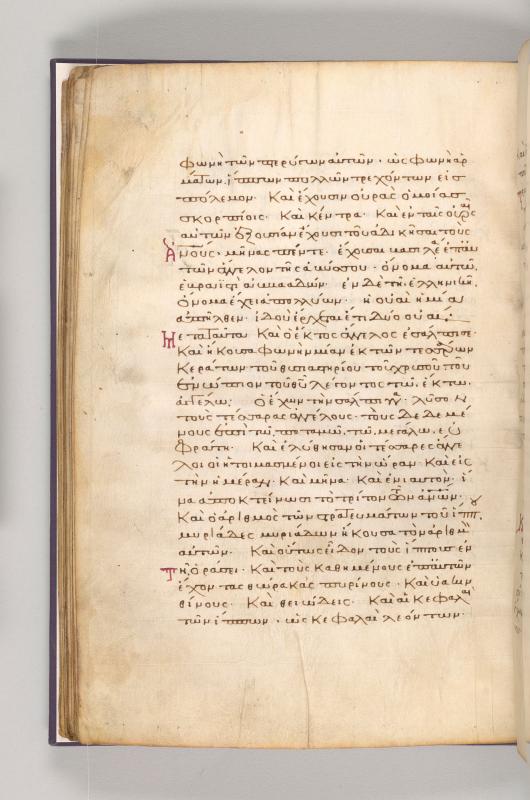 φωνὴ τῶν πτερύγων αὐτῶν · ὡς φωνὴ ἁρ
μάτων, ἵππων πολλῶν τρεχόντων εἰς
πόλεμον · Καὶ ἔχουσιν οὐρὰς ὁμοίας
σκορπίοις · Καὶ κέντρα · Καὶ ἐν ταῖς οὐραῖς
αὐτῶν ἐξουσίαν ἔχουσι τοῦ ἀδικῆσαι τοὺς
ἀνους · μῆνας πέντε · ἔχουσαι βασιλέα ἐπ' αὐ
τῶν ἄγγελον τῆς ἀβύσσου · ὄνομα αὐτῶ,
ἑβραϊστὶ ἀββααδών · ἐν δὲ τῇ ἑλληνικῇ,
ὄνομα ἔχει ἀπολλύων · ἡ οὐαὶ ἡ μία
ἀπῆλθεν · ἰδοὺ ἔρχεται ἔτι δύο οὐαί
Μετα ταῦτα Καὶ ὁ ἕκτος ἄγγελος ἐσάλπισε ·
Καὶ ἤκουσα φωνὴν μίαν ἐκ τῶν τεσσάρων
Κεράτων τοῦ θυσιαστηρίου τοῦ χρυσοῦ τοῦ
ἐνώπιον τοῦ θυ λέγοντος τῶ, ἕκτω,
ἀγγέλω, Ὁ ἔχων τὴν σάλπιγγα · λῦσον
τοὺς τέσσαρας ἀγγέλους · τοὺς δεδεμέ
νους ἐπὶ τῶ, ποταμῶ, τῶ, μεγάλω, εὐ
φράτη · Καὶ ἐλύθησαν οἱ τέσσαρες ἄγγε
λοι οἱ ἡτοιμασμένοι εἰς τὴν ὥραν · Καὶ εἰς
τὴν ἡμέραν · Καὶ μῆνα · Καὶ ἐνιαυτόν · ἵ
να ἀποκτείνωσι τὸ τρίτον τῶν ἀνων ·
Καὶ ὁ ἀριθμὸς τῶν στρατευμάτων τοῦ ἵππου
μυριάδες μυριάδων ἤκουσα τὸν ἀριθμὸν
αὐτῶν · Καὶ οὕτως εἶδον τοὺς ἵππους ἐν
τῇ ὁράσει · Καὶ τοὺς καθημένους ἐπ' αὐτῶν
ἔχοντας θώρακας πυρίνους · Καὶ ὑακιν
θίνους · Καὶ θειώδεις · Καὶ αἱ κεφαλαὶ
τῶν ἵππων · ὡς κεφαλαὶ λεόντων ·